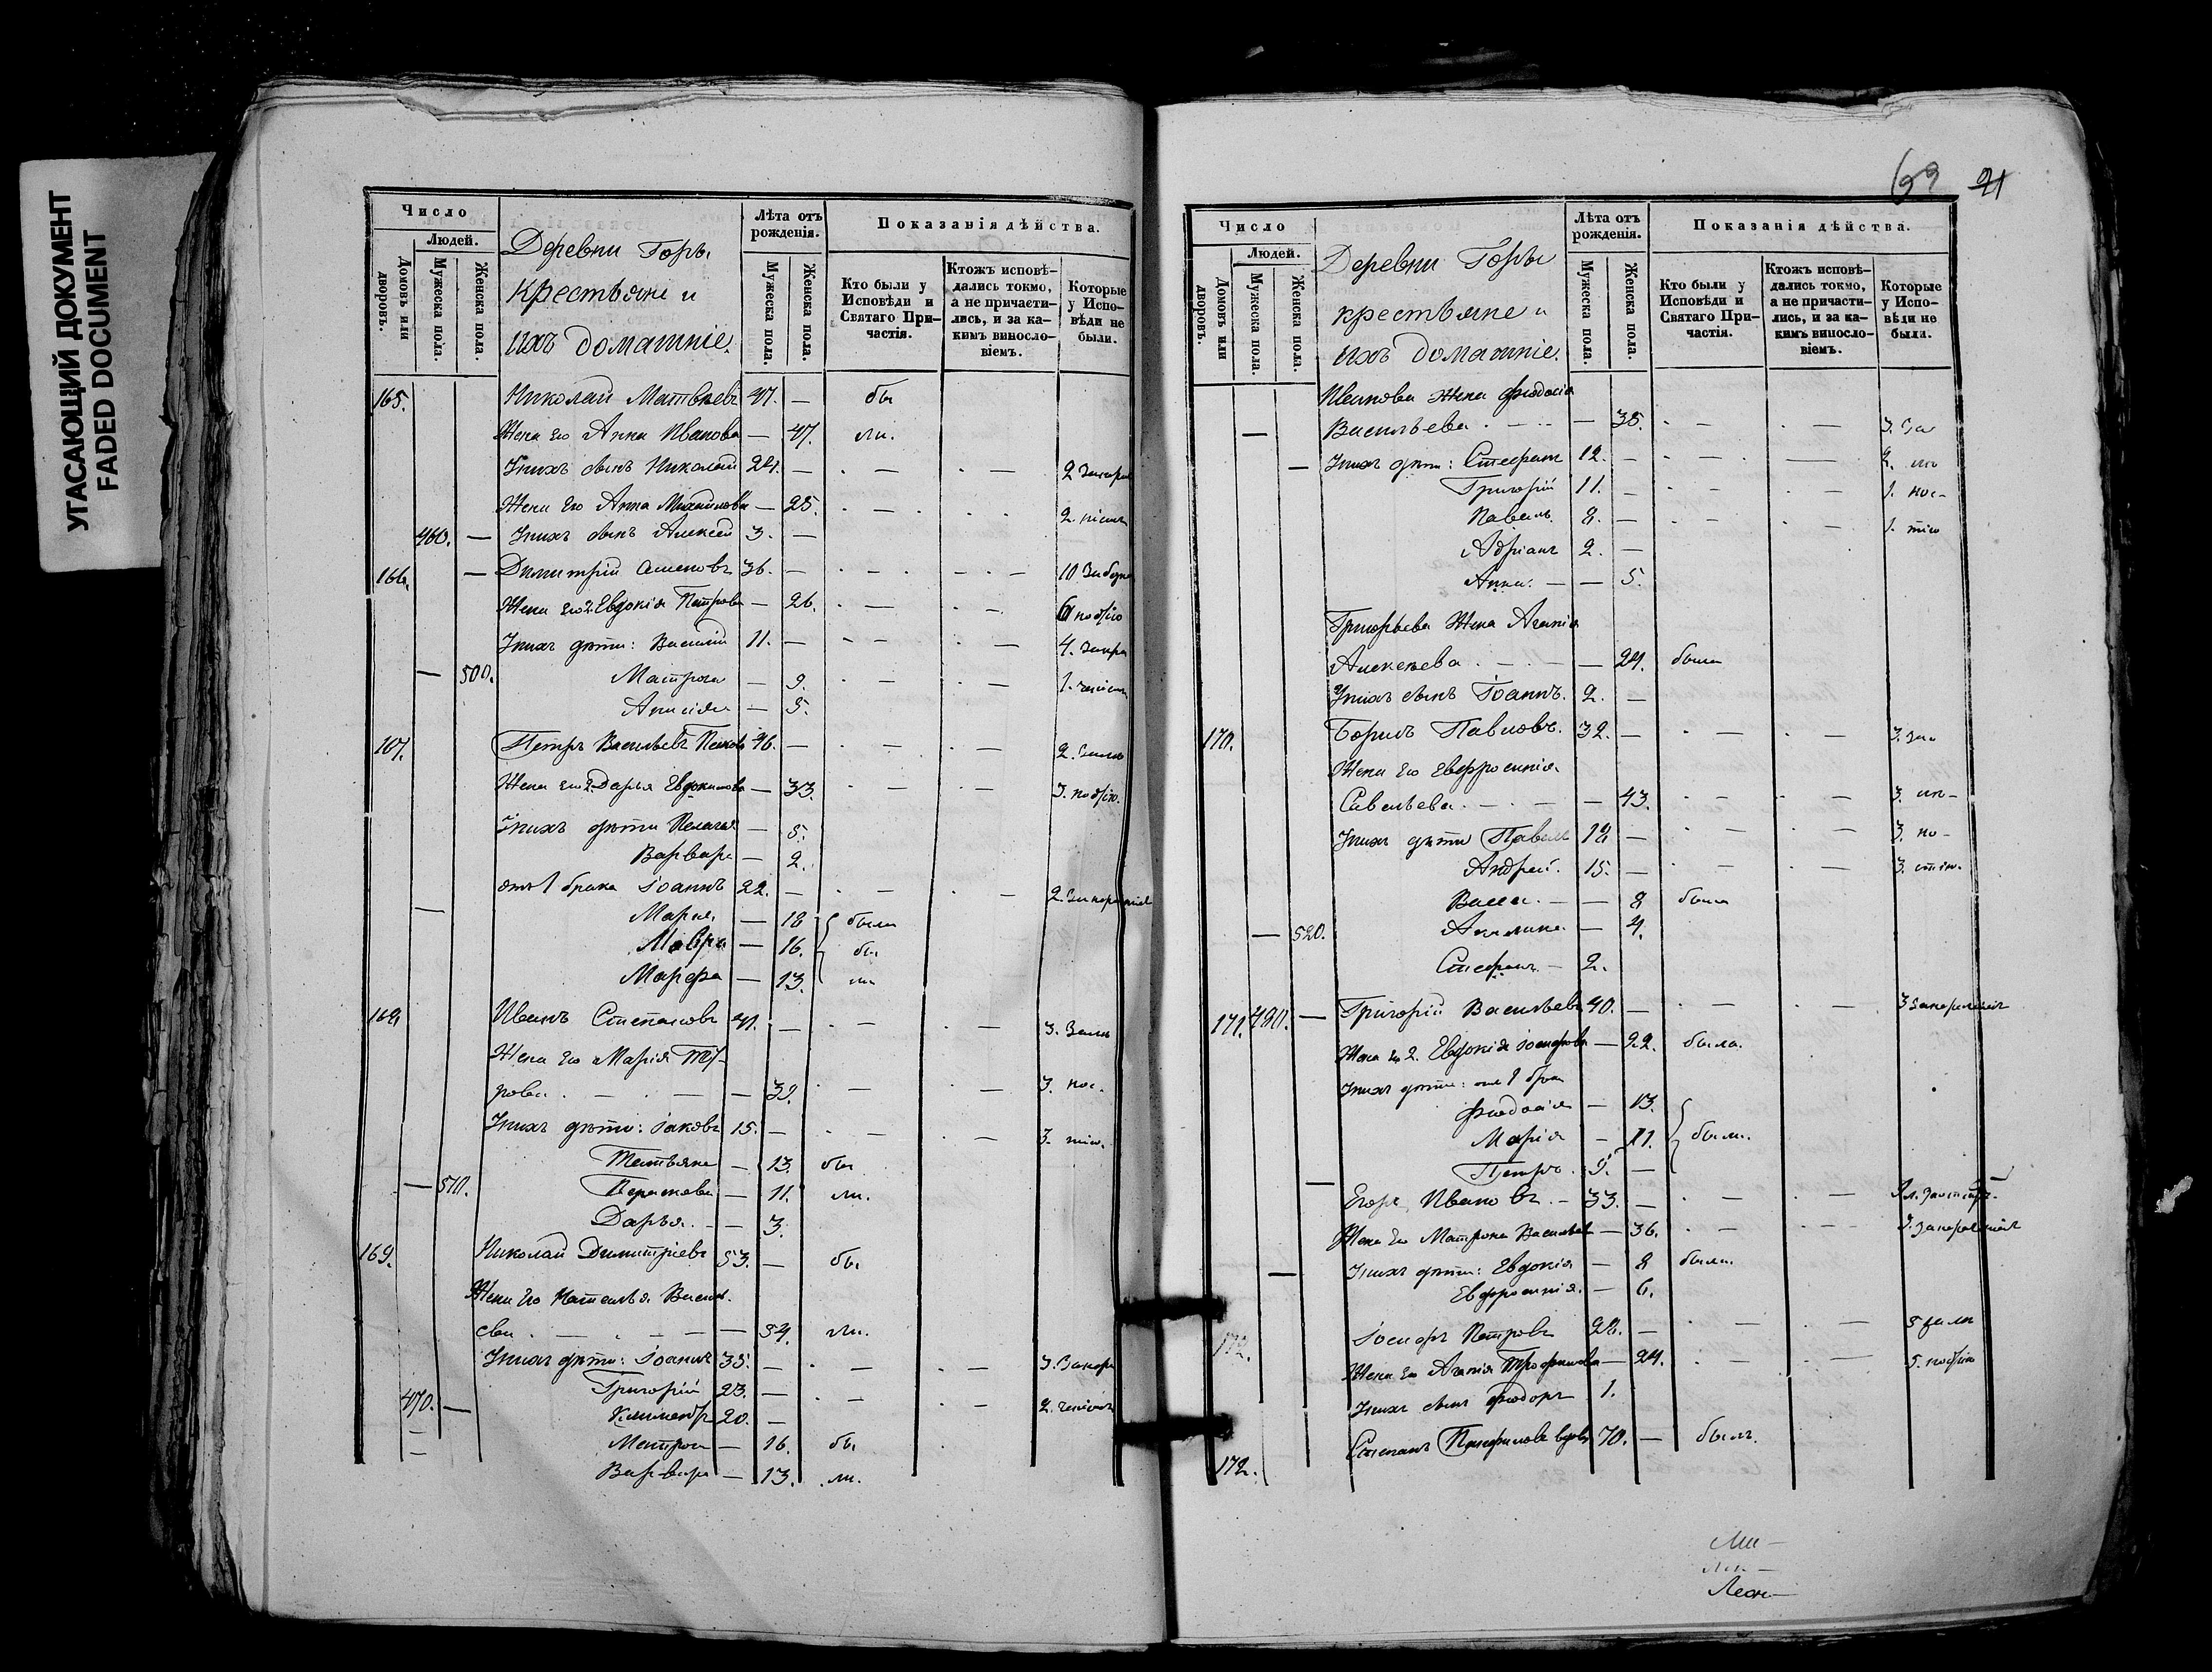 УГАСАЮЩИЙ ДОКУМЕНТ
FADED DOCUMENT
Число
Людей.
Домовъ или дворовъ.
Мужеска пола.
Женска пола.
Деревни Горы
крестьяне и
ихъ домашніе.
Лѣта отъ рожденія.
Мужеска пола.
Женска пола.
Показанія дѣйства.
Кто были у Исповѣди и Святаго Причастія.
Ктожъ исповѣдались токмо, а не причастились, и за какимъ винословіемъ.
Которые у Исповѣди не были.
165. Николай Матвѣевъ 47. — бы
Жена его Анна Иванова — 47. ли.
У нихъ сынъ Николай 24. — 2
Жена его Анна Михайлова — 25. 2.
460. — У нихъ сынъ Алексей 3. —
166. — Димитрій Семеновъ 36. — 10
Жена его 2. Евдокія Петрова — 26. по
У нихъ дѣти: Василій 11. — 4.
— 500. Матрона — 9. 1.
Анисія — 5.
167. Петръ Васильевъ 46. — 2.
Жена его 2. Дарья Евдокимова — 33. 3.
У нихъ дѣти Пелагея — 5.
Варвара — 2.
отъ 1 брака Іоаннъ 22. — 2.
Марія — 18 были
Мавра — 16. бы
Марфа — 13. ли
168. Иванъ Степановъ 41. — 3.
Жена его Марія
рова — 39. 3.
У нихъ дѣти: Іаковъ 15. — 3.
Татьяна — 13. бы
— 510. Параскева — 11. ли.
Дарья — 3.
169. Николай Димитріевъ 53. — бы
Жена его Наталья Василь
ева — 54. ли.
У нихъ дѣти: Іоаннъ 35. — 3.
Григорій 23. — 2.
470. — Климентъ 20. —
Матрона — 16. бы
Варвара — 13. ли.
69 21
Число
Людей.
Домовъ или дворовъ.
Мужеска пола.
Женска пола.
Деревни Горы
крестьяне и
ихъ домашніе.
Лѣта отъ рожденія.
Мужеска пола.
Женска пола.
Показанія дѣйства.
Кто были у Исповѣди и Святаго Причастія.
Ктожъ исповѣдались токмо, а не причастились, и за какимъ винословіемъ.
Которые у Исповѣди не были.
Иванова жена Феодосія
— Васильева — 35. 3. за
— У нихъ дѣти: Стефанъ 12. — 2.
Григорій 11. — 1.
Павелъ 8. — 1.
Адріанъ 2. —
Анна — 5.
Григорьева жена Агапія
Алексѣева — 24. была
У нихъ сынъ Іоаннъ. 2. —
170. Борисъ Павловъ. 32. — 3.
Жена его Евфросинія
Савельева — 43. 3.
У нихъ дѣти Павелъ 18 — 3. по
Андрей. 15. — 3.
Васса — 8 была
— 520. Акилина — 4.
Стефанъ — 2.
171. 480. — Григорій Васильевъ 40. — 3
Жена его 2. Евдокія Іосифова — 22. была.
У нихъ дѣти: отъ 1 брака
Феодосія — 13.
Марія — 11. были.
Петръ 9. —
— Егоръ Ивановъ — 33. —
Жена его Матрона Васильева — 36. 3.
— У нихъ дѣти: Евдокія — 8 была.
Евфросинія. — 6.
172. Іосифъ Петровъ 28. — 5
Жена его Агапія Трофимова — 24. 5.
У нихъ сынъ Феодоръ 1.
172. Степанъ Панфиловъ вдовъ 70. — былъ.